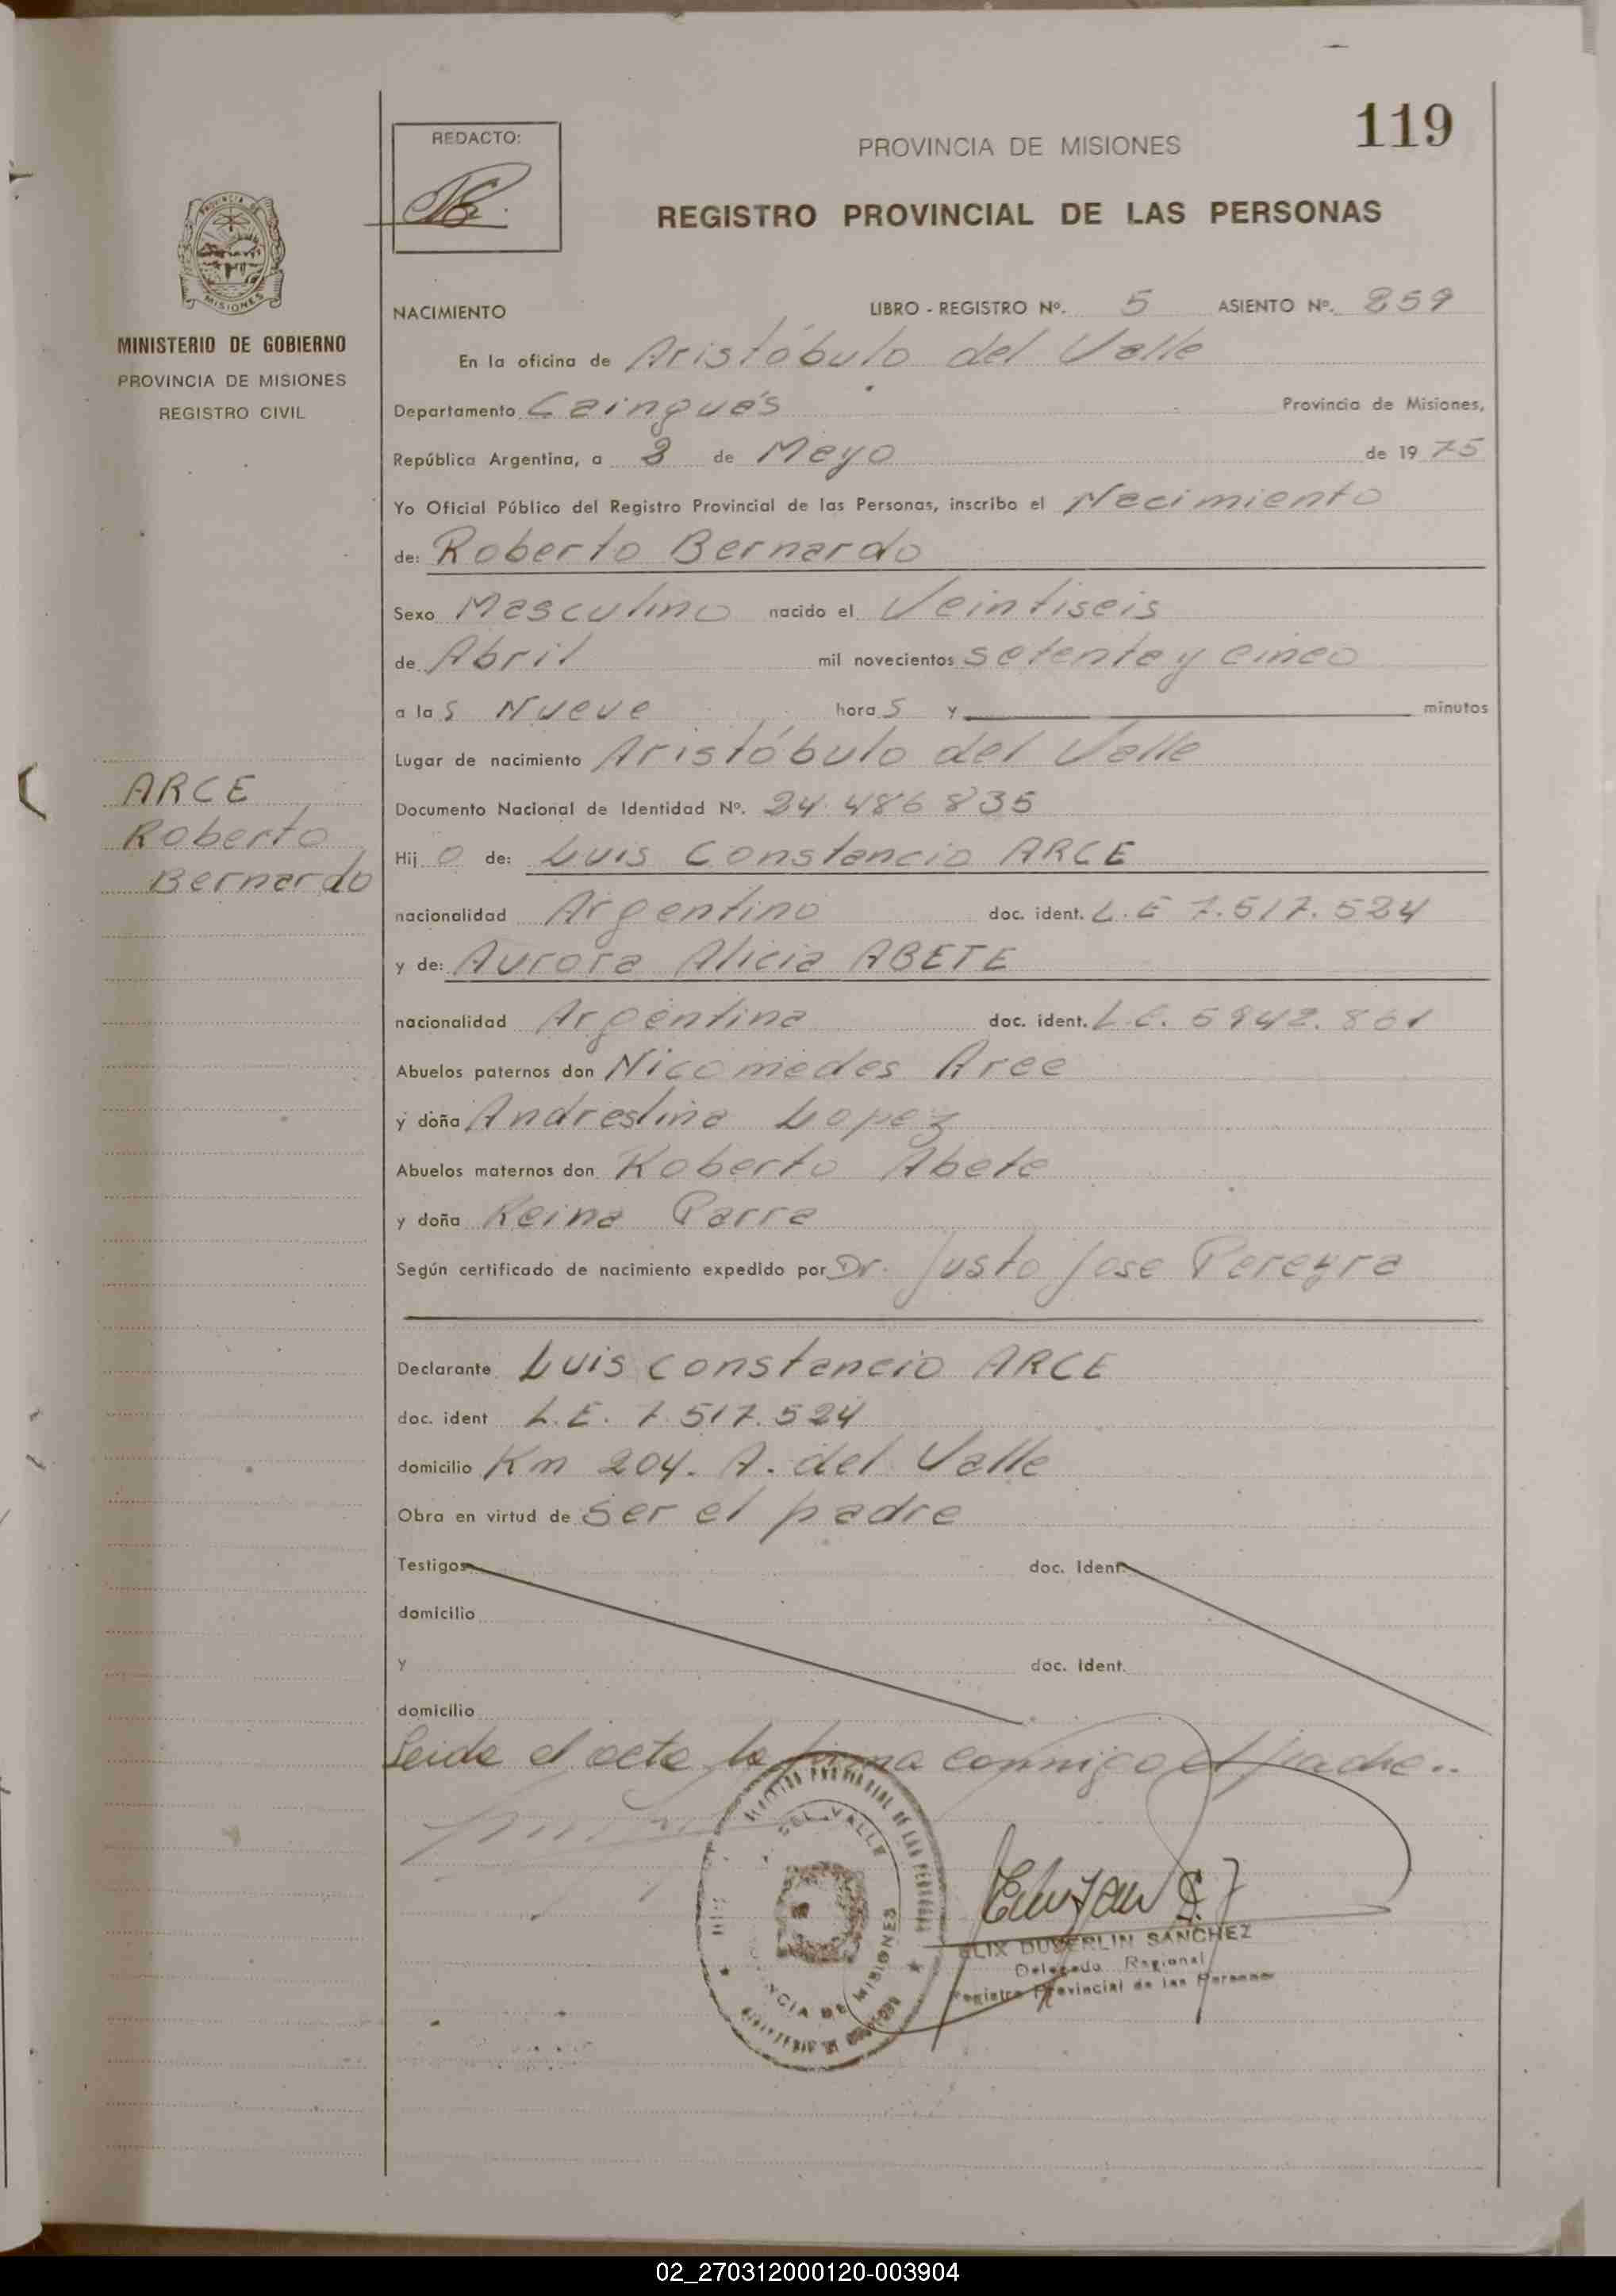 119
REDACTO:
PROVINCIA DE MISIONES
REGISTRO PROVINCIAL DE LAS PERSONAS
PROVINCIA DE
MISIONES
MINISTERIO DE GOBIERNO
PROVINCIA DE MISIONES
REGISTRO CIVIL
NACIMIENTO LIBRO - REGISTRO Nº. 5 ASIENTO Nº. 859
En la oficina de Aristóbulo del Valle
Departamento Cainguás Provincia de Misiones,
República Argentina, a 8 de Mayo de 1975
Yo Oficial Público del Registro Provincial de las Personas, inscribo el Nacimiento
de: Roberto Bernardo
Sexo Masculino nacido el Veintiseis
de Abril mil novecientos setenta y cinco
a las Nueve horas y minutos
Lugar de nacimiento Aristóbulo del Valle
ARCE
Roberto
Bernardo
Documento Nacional de Identidad Nº. 24.486835
Hijo de: Luis Constancio ARCE
nacionalidad Argentino doc. ident. L.E 7.517.524
y de: Aurora Alicia ABETE
nacionalidad Argentina doc. ident. L.C. 5942.801
Abuelos paternos don Nicomedes Arce
y doña Andrestina Lopez
Abuelos maternos don Roberto Abete
y doña Reina Parra
Según certificado de nacimiento expedido por Dr. Justo Jose Pereyra
Declarante Luis Constancio ARCE
doc. ident L.E. 7.517.524
domicilio Km 204. A. del Valle
Obra en virtud de ser el padre
Testigos doc. Ident.
domicilio
y doc. Ident.
domicilio
Leida el acta la firma conmigo el padre..
REGISTRO PROVINCIAL DE LAS PERSONAS
DEL VALLE
PROVINCIA DE MISIONES
ELIX DUVERLIN SANCHEZ
Delegado Regional
Registro Provincial de las Personas
02_270312000120-003904